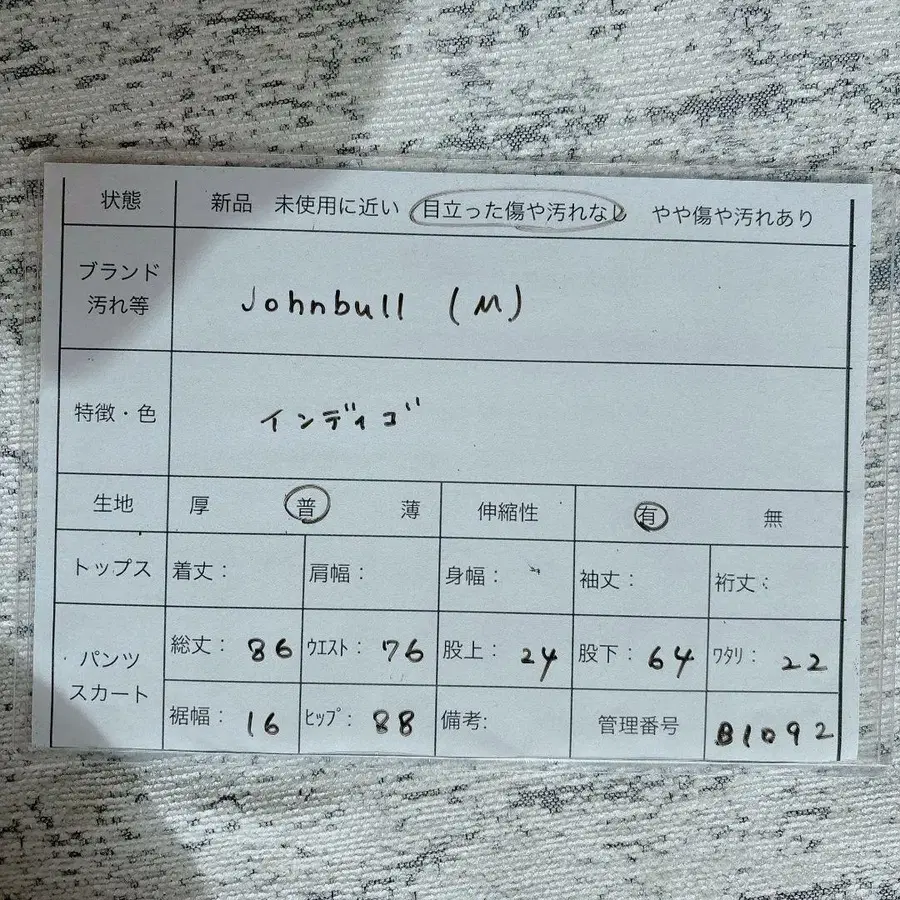 状態 新品 未使用に近い 目立った傷や汚れなし やや傷や汚れあり
ブランド
汚れ等
Johnbull (M)
特徴・色 インディゴ
生地 厚 普 薄 伸縮性 有 無
トップス 着丈: 肩幅: 身幅: 袖丈: 裄丈:
パンツ
スカート
総丈: 86 ウエスト: 76 股上: 24 股下: 64 ワタリ: 22
裾幅: 16 ヒップ: 88 備考: 管理番号 B1092